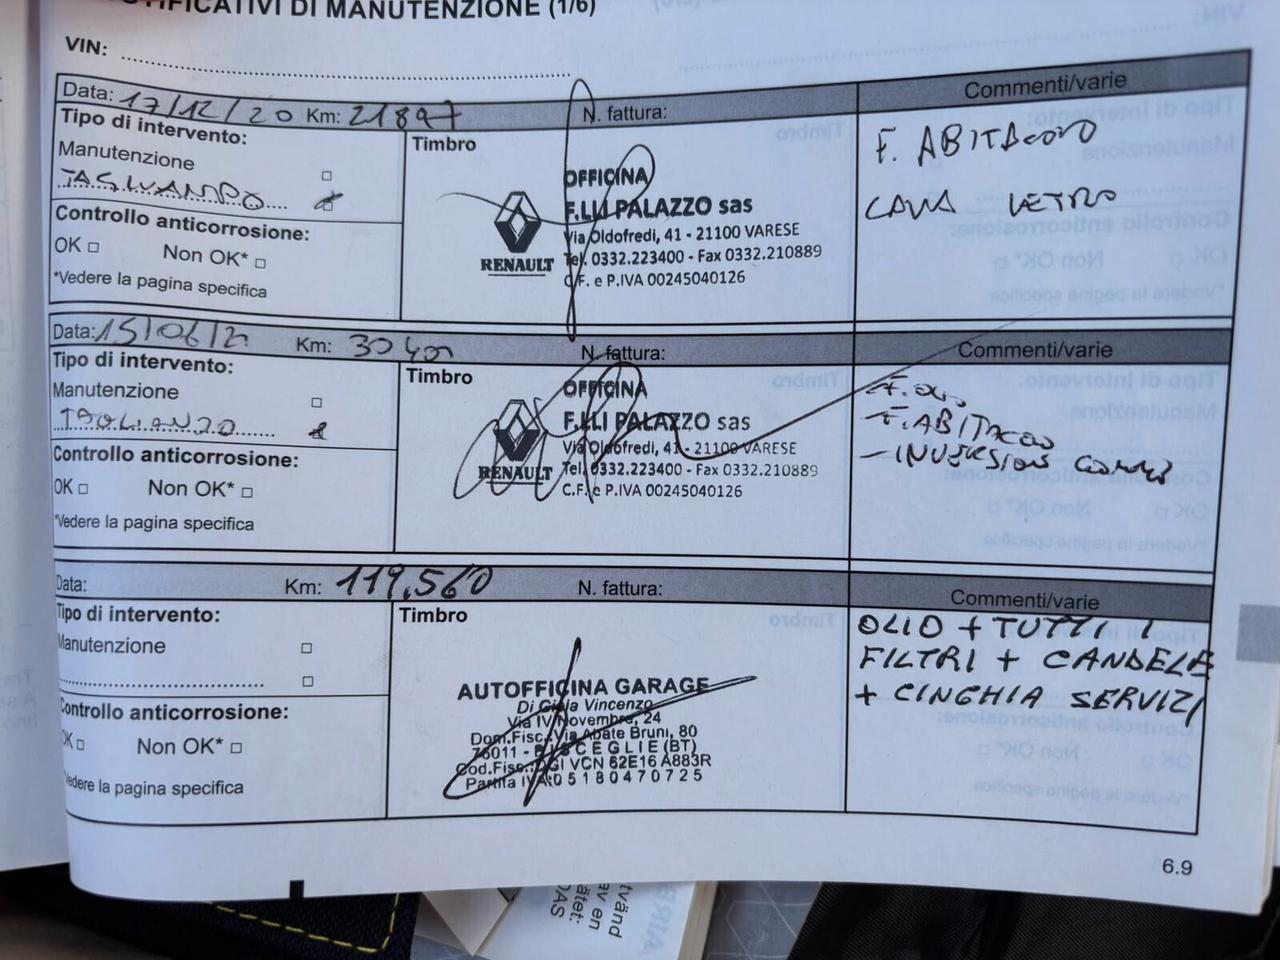 TIFICATIVI DI MANUTENZIONE (1/6)
VIN:
Data: 17/12/20 Km: 21897 N. fattura:
Commenti/varie
Tipo di intervento:
Manutenzione
TAGLIANDO
Controllo anticorrosione:
OK Non OK*
*Vedere la pagina specifica
Timbro
RENAULT
OFFICINA
F.LLI PALAZZO sas
Via Oldofredi, 41 - 21100 VARESE
Tel. 0332.223400 - Fax 0332.210889
C.F. e P.IVA 00245040126
F. ABITACOLO
LAVA VETRO
Data: 15/06/21 Km: N. fattura:
Commenti/varie
Tipo di intervento:
Manutenzione
TAGLIANDO
Controllo anticorrosione:
OK Non OK*
*Vedere la pagina specifica
Timbro
RENAULT
OFFICINA
F.LLI PALAZZO sas
Via Oldofredi, 41 - 21100 VARESE
Tel. 0332.223400 - Fax 0332.210889
C.F. e P.IVA 00245040126
- F. OLIO
- F. ABITACOLO
- INVERSIONE GOMME
Data: Km: 119,560 N. fattura:
Commenti/varie
Tipo di intervento:
Manutenzione
Controllo anticorrosione:
OK Non OK*
Vedere la pagina specifica
Timbro
AUTOFFICINA GARAGE
Di Vincenzo
Via IV Novembre, 24
Dom.Fisc.: Via Abate Bruni, 80
76011 - BISCEGLIE (BT)
Cod.Fisc.: VCN 62E16 A883R
Partita IVA: 05180470725
OLIO + TUTTI I
FILTRI + CANDELE
+ CINGHIA SERVIZI
6.9